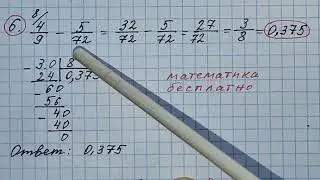 6. 8/ 4/9 - 5/72 = 32/72 - 5/72 = 27/72 = 3/8 = 0,375
- 3,0 | 8
24 | 0,375
- 60
56
- 40
40
0
математика
бесплатно
Ответ: 0,375